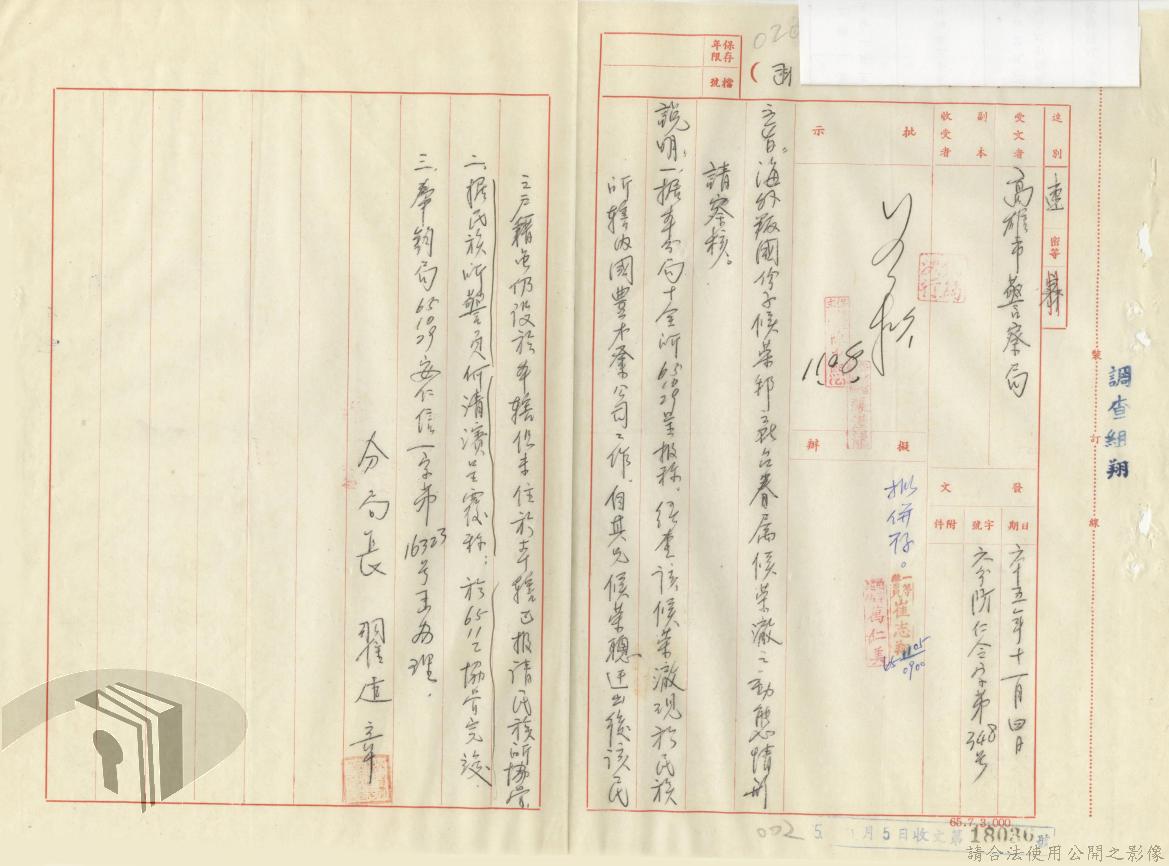 調查組翔
裝
訂
線
速別
速
密等
受文者
高雄市警察局
副本
收受者
發文
日期
六十五年十一月四日
字號
號
附件
批示
1108
擬辦
批併存。
一等
崔志
1105
0900
保存年限
檔號
主旨:海外叛國份子侯榮邦在台眷屬侯榮澈之動態情形
請察核。
說明:一、據本分局十全所65.10.29呈報称,經查該侯榮澈現於民族
所轄內國豐木業公司工作,自其兄侯榮聰遷出後該民
之戶籍虽仍設於本轄但未住於本轄已報請民族所協管
二、據民族所警員何清濱呈覆称:於65.11.2協管完竣。
三、奉鈞局65.10.29安仁信一字第16323号書办理。
分局長
翟道
65.7.3,000
002
月5日收文第18036號
請合法使用公開之影像